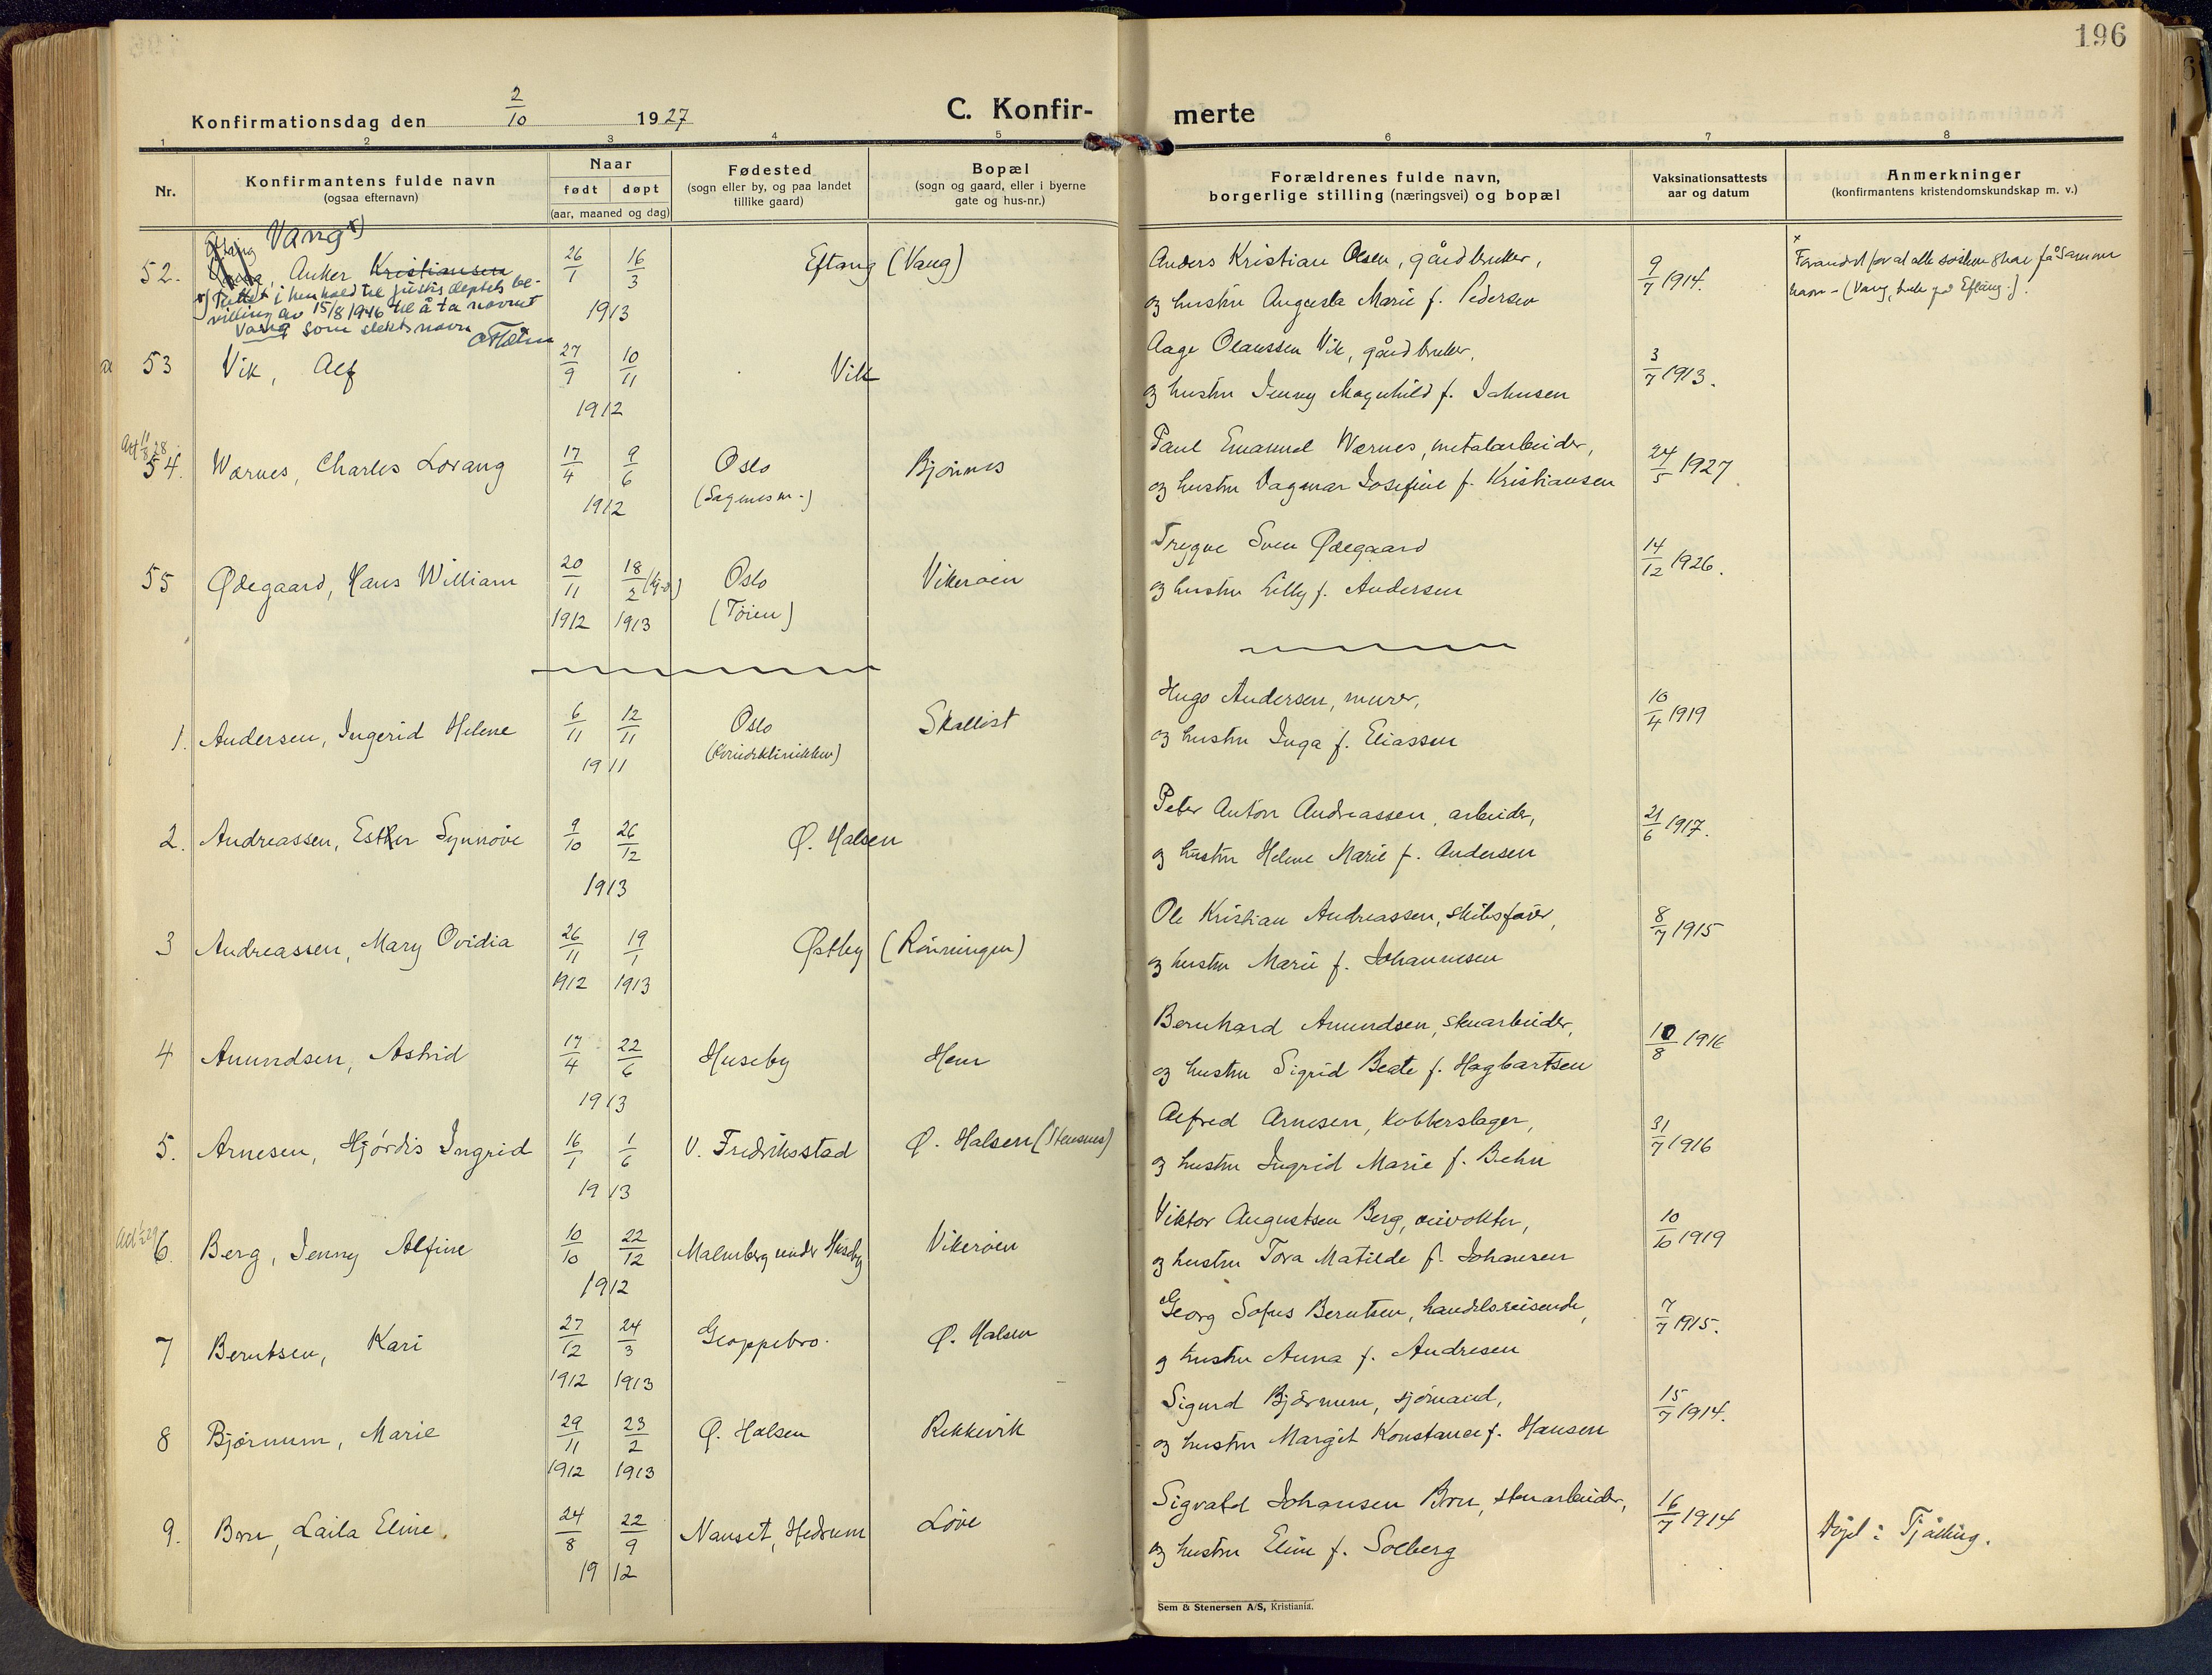 196
Konfirmationsdag den 2/10 1927
C. Konfirmerte
1 2 3 4 5 6 7 8
Nr.
Konfirmantens fulde navn
(ogsaa efternavn)
Naar
født døpt
(aar, maaned og dag)
Fødested
(sogn eller by, og paa landet
tillike gaard)
Bopæl
(sogn og gaard, eller i byerne
gate og hus-nr.)
Forældrenes fulde navn,
borgerlige stilling (næringsvei) og bopæl
Vaksinationsattests
aar og datum
Anmerkninger
(konfirmantens kristendomskundskap m. v.)
Eftang Vang x)
52. Anker Kristiansen 26/1 16/3 1913 Eftang (Vang)
x) Tillatt i henhold til justisdeptets be-
villing av 15/8 1946 til å ta navnet
Vang som slektsnavn
Anders Kristian Olsen, gårdbruker,
og hustru Augusta Marie f. Pedersen
9/7 1914.
x Forandret for at alle søsken skal få samme
navn - (Vang, bule på Eftang.).
53 Vik, Alf 27/9 10/11 1912 Vik
Aage Olaussen Vik, gårdbruker,
og hustru Jenny Magnhild f. Jahnsen
3/7 1913.
54. Wærnes, Charles Lorang 17/4 9/6 1912 Oslo Bjønnes
(Sagenes m.)
Paul Emanuel Wærnes, metalarbeider,
og hustru Dagmar Josefine f. Kristiansen
24/5 1927
55 Ødegaard, Hans William 20/11 1912 18/2 1913 Oslo Vikerøien
(Tøien)
Trygve Sven Ødegaard
og hustru Lilly f. Andersen
14/12 1926.
1. Andersen, Ingerid Helene 6/11 12/11 1911 Oslo Skallist
(Kvindeklinikken)
Hugo Andersen, murer,
og hustru Inga f. Eliassen
10/4 1919
2. Andreassen, Esther Synnøve 9/10 26/12 1913 Ø. Halsen
Peter Anton Andreassen, arbeider,
og hustru Helene Marie f. Andersen
21/6 1917.
3 Andreassen, Mary Ovidia 26/11 1912 19/1 1913 Østby (Rønningen)
Ole Kristian Andreassen, skibsfører,
og hustru Marie f. Johannesen
8/7 1915
4 Amundsen, Astrid 17/4 22/6 1913 Huseby Hem
Bernhard Amundsen, stenarbeider,
og hustru Sigrid Beate f. Hagbartsen
10/8 1916
5. Arnesen, Hjørdis Ingrid 16/1 1/6 1913 V. Fredriksstad Ø. Halsen (Stensnes)
Alfred Arnesen, kobberslager,
og hustru Ingrid Marie f. Behn
31/7 1916
6. Berg, Jenny Alfine 10/10 22/12 1912 Malmberg under Huseby Vikerøien
Viktor Augustsen Berg, veivokter,
og hustru Tora Matilde f. Johansen
10/10 1919
7 Berntsen, Kari 27/12 1912 24/3 1913 Gloppebro. Ø. Halsen
Georg Sofus Berntsen, handelsreisende,
og hustru Anna f. Andresen
7/7 1915.
8 Bjørnum, Marie 29/11 1912 23/2 1913 Ø. Halsen Rekkevik
Sigurd Bjørnum, sjømand,
og hustru Margit Konstance f. Hansen
15/7 1914.
9. Bru, Laila Eline. 24/8 22/9 1912 Nanset, Hedrum Løve
Sigvald Johansen Bru, stenarbeider,
og hustru Eline f. Solberg
16/7 1914
Døpt i Tjølling.
Sem & Stenersen A/S, Kristiania.